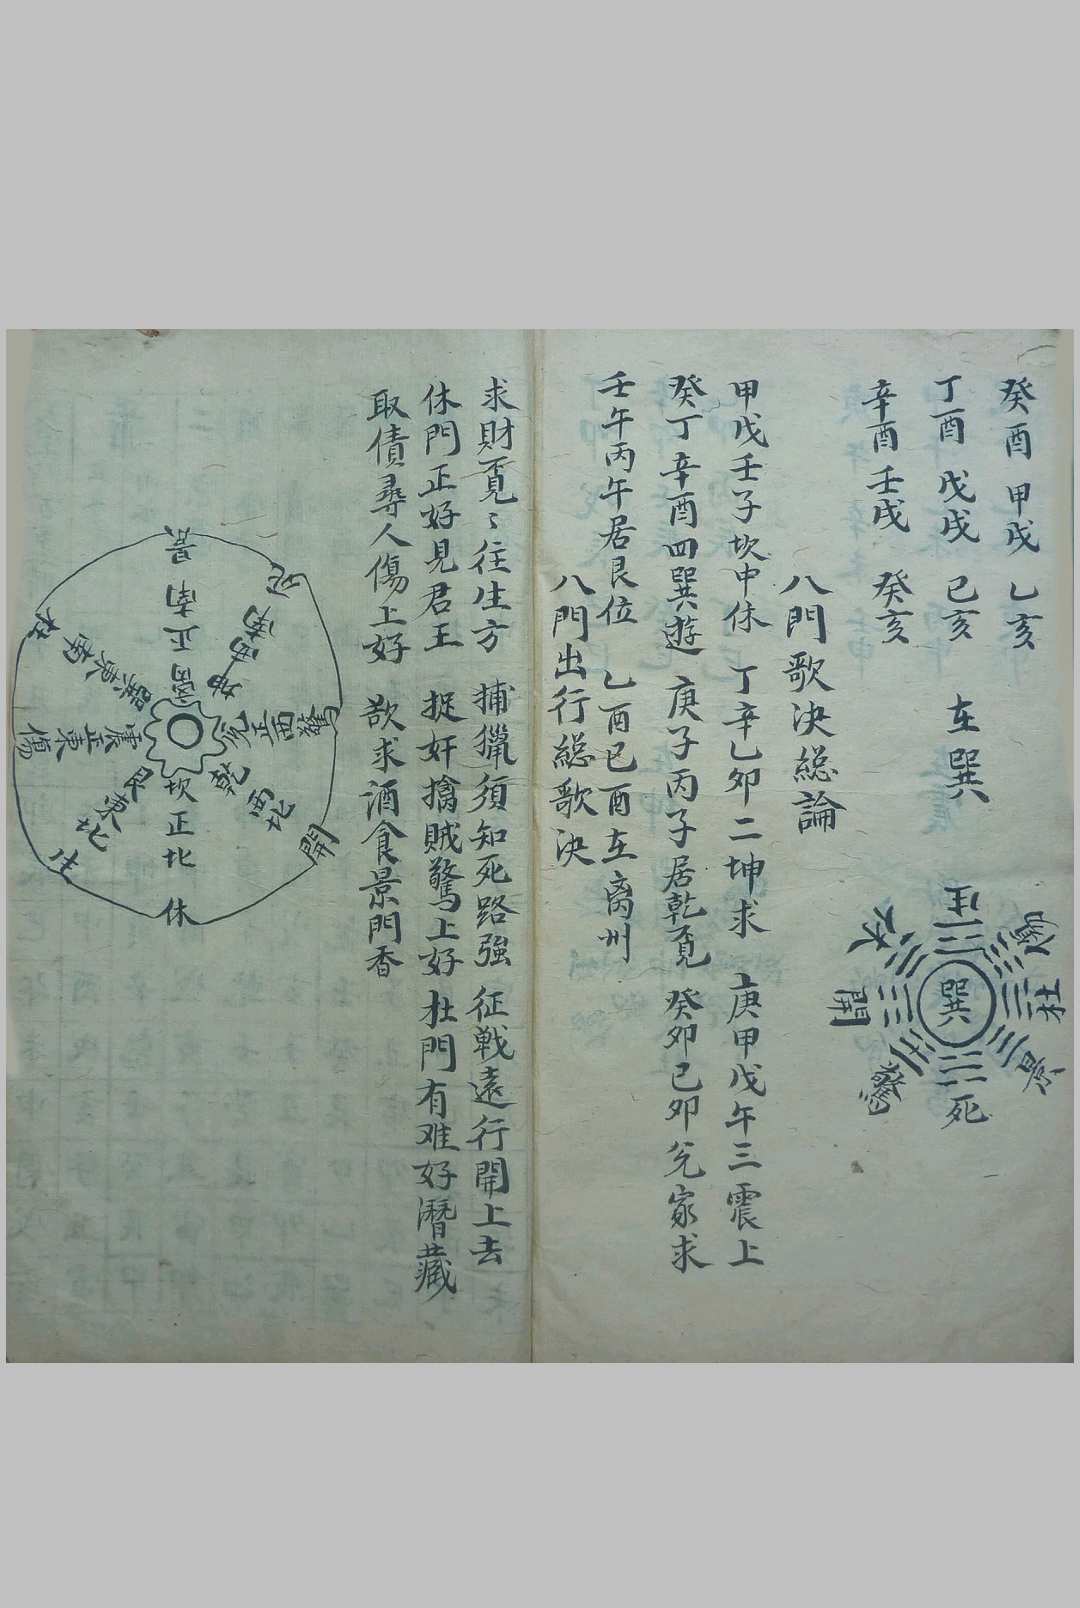 癸酉 甲戌 乙亥
丁酉 戊戌 己亥 在巽
辛酉 壬戌 癸亥
巽
生
傷
杜
景
死
驚
開
休
八門歌決総論
甲戊壬子坎中休 丁辛乙卯二坤求 庚甲戊午三震上
癸丁辛酉四巽遊 庚子丙子居乾覓 癸卯己卯兑家求
壬午丙午居艮位 乙酉己酉在离州
八門出行総歌決
求財覓〻往生方 捕獵須知死路強 征戦遠行開上去
休門正好見君王 捉奸擒賊驚上好 杜門有难好潛藏
取債尋人傷上好 欲求酒食景門香
离正南 景
坤西南 死
兑正西 驚
乾西北 開
坎正北 休
艮東北 生
震正東 傷
巽東南 杜